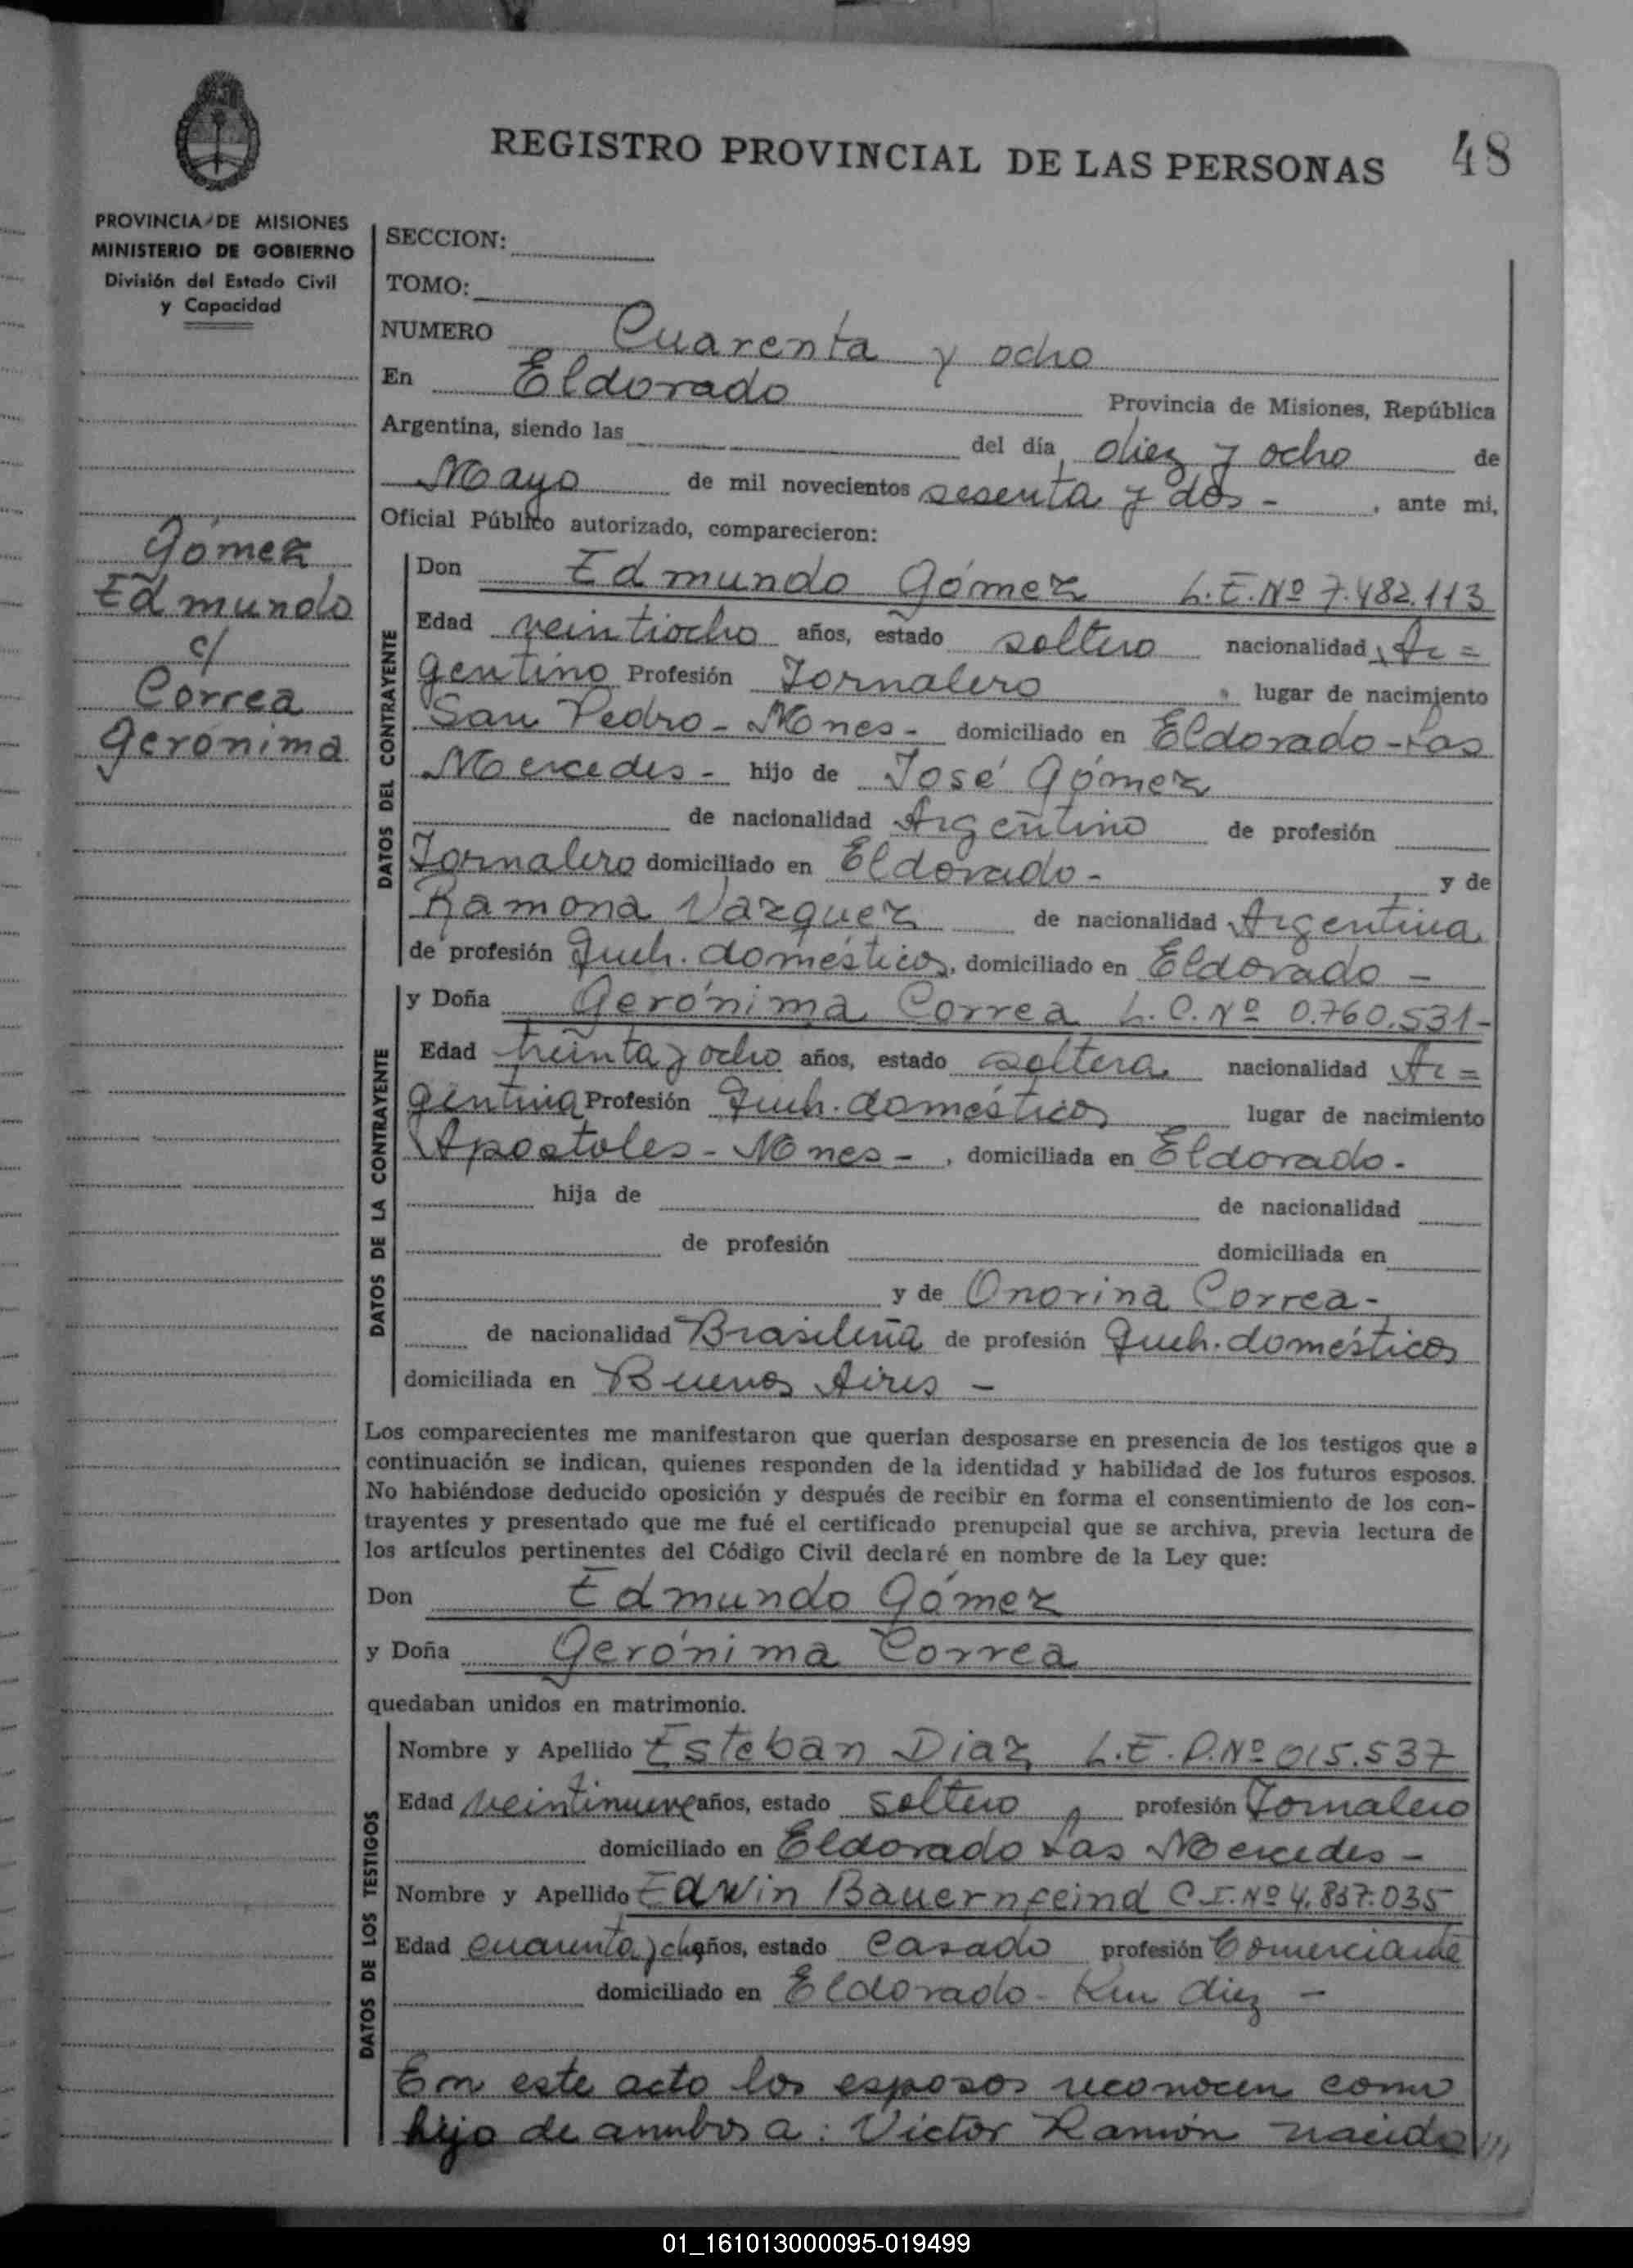 REGISTRO PROVINCIAL DE LAS PERSONAS 48
PROVINCIA DE MISIONES
MINISTERIO DE GOBIERNO
División del Estado Civil
y Capacidad
Gómez
Edmundo
c/
Correa
Gerónima
SECCION:
TOMO:
NUMERO Cuarenta y ocho
En Eldorado Provincia de Misiones, República
Argentina, siendo las del día diez y ocho de
Mayo de mil novecientos sesenta y dos - , ante mi,
Oficial Público autorizado, comparecieron:
DATOS DEL CONTRAYENTE
Don Edmundo Gómez L.E.Nº 7.482.113
Edad veintiocho años, estado soltero nacionalidad Ar=
gentino Profesión Jornalero , lugar de nacimiento
San Pedro - Mones - domiciliado en Eldorado - Las
Mercedes - hijo de José Gómez
de nacionalidad Argentino de profesión
Jornalero domiciliado en Eldorado - y de
Ramona Vazquez de nacionalidad Argentina
de profesión Queh. domésticos, domiciliado en Eldorado -
DATOS DE LA CONTRAYENTE
y Doña Gerónima Correa L.C.Nº 0.760.531-
Edad treinta y ocho años, estado soltera nacionalidad Ar=
gentina Profesión Queh. domésticos lugar de nacimiento
Apostoles - Mones - , domiciliada en Eldorado -
hija de de nacionalidad
de profesión domiciliada en
y de Onorina Correa -
de nacionalidad Brasileña de profesión Queh. domésticos
domiciliada en Buenos Aires -
Los comparecientes me manifestaron que querían desposarse en presencia de los testigos que a
continuación se indican, quienes responden de la identidad y habilidad de los futuros esposos.
No habiéndose deducido oposición y después de recibir en forma el consentimiento de los con-
trayentes y presentado que me fué el certificado prenupcial que se archiva, previa lectura de
los artículos pertinentes del Código Civil declaré en nombre de la Ley que:
Don Edmundo Gómez
y Doña Gerónima Correa
quedaban unidos en matrimonio.
DATOS DE LOS TESTIGOS
Nombre y Apellido Esteban Diaz L.E.D.Nº 015.537
Edad veintinueve años, estado soltero , profesión Jornalero
domiciliado en Eldorado Las Mercedes -
Nombre y Apellido Edwin Bauernfeind C.I.Nº 4.837.035
Edad cuarenta y años, estado casado profesión Comerciante
domiciliado en Eldorado - Km diez -
En este acto los esposos reconocen como
hijo de ambos a: Victor Ramón nacido
01_161013000095-019499